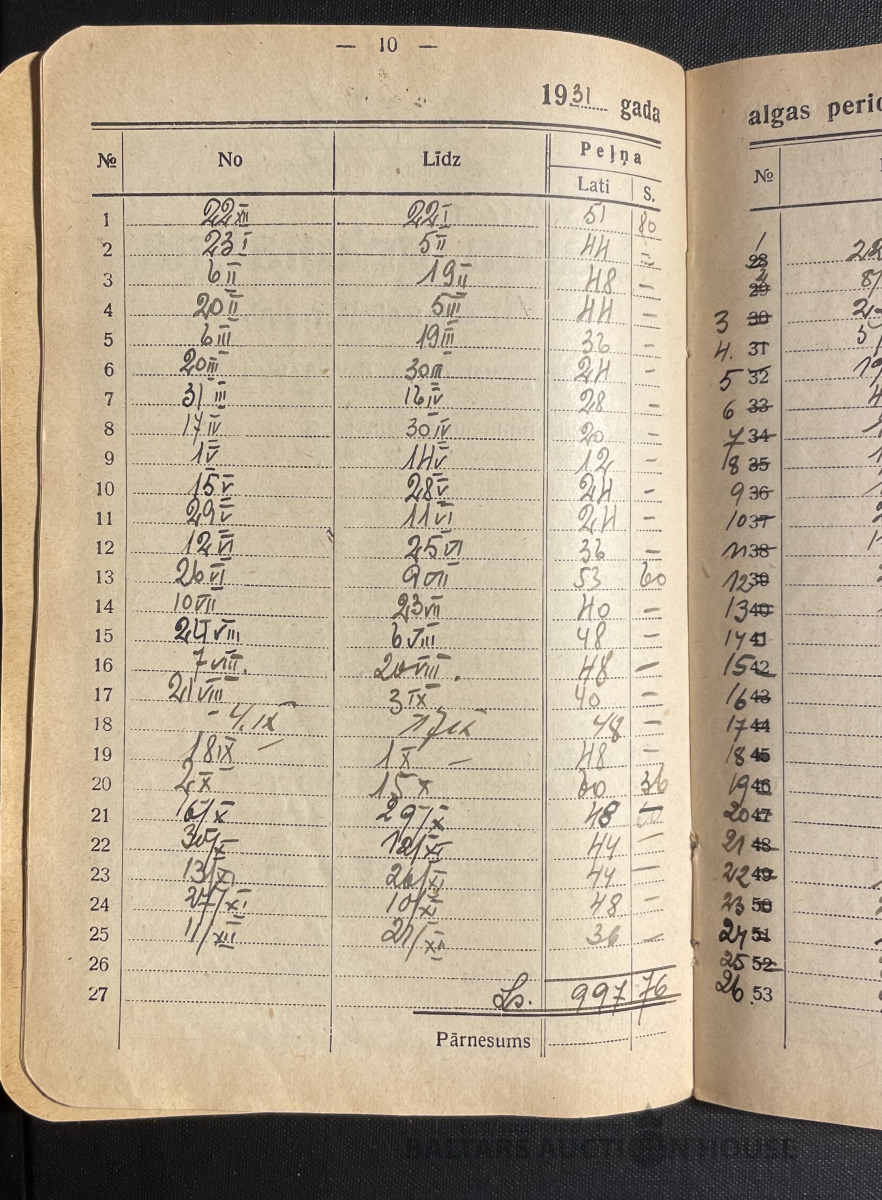 — 10 —
1931 gada
№ No Līdz Peļņa
Lati S.
1 22 XII 22 I 51 80
2 23 I 5 II 44 –
3 6 II 19 II 48 –
4 20 II 5 III 44 –
5 6 III 19 III 36 –
6 20 III 30 III 24 –
7 31 III 16 IV 28 –
8 17 IV 30 IV 20 –
9 1 V 14 V 12 –
10 15 V 28 V 24 –
11 29 V 11 VI 24 –
12 12 VI 25 VI 36 –
13 26 VI 9 VII 53 60
14 10 VII 23 VII 40 –
15 24 VIII 6 VIII 48 –
16 7 VIII. 20 VIII. 48 –
17 21 VIII 3 IX 40 –
18 - 4. IX 17 IX 48 –
19 18 IX – 1 X – 48 –
20 2 X 15 X 60 36
21 16/X 29/X 48 –
22 30/X 12/XI 44 –
23 13/XI 26/XI 44 –
24 27/XI 10/XI 48 –
25 11/XII 21/XII 36 –
26
27 Ls. 997 76
Pārnesums
algas perio
№
1 28
2 29
3 30
4. 31
5 32
6 33
7 34
8 35
9 36
10 37
11 38
12 39
13 40
14 41
15 42
16 43
17 44
18 45
19 46
20 47
21 48
22 49
23 50
24 51
25 52
26 53
BALTARS AUCTION HOUSE